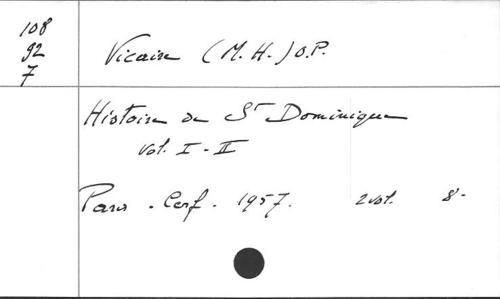 108
92
7
Vicaire (M. H.) O.P.
Histoire de St Dominique
Vol. I - II
Paris - Cerf - 1957. 2 vol. 8°